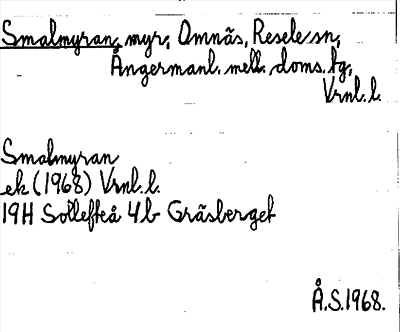 Smalmyran, myr, Omnäs, Resele sn,
Ångermanl. mell. doms. tg,
Vrnl. l.
Smalmyran
ek (1968) Vrnl. l.
19H Sollefteå 4b Gräsberget
Å.S. 1968.